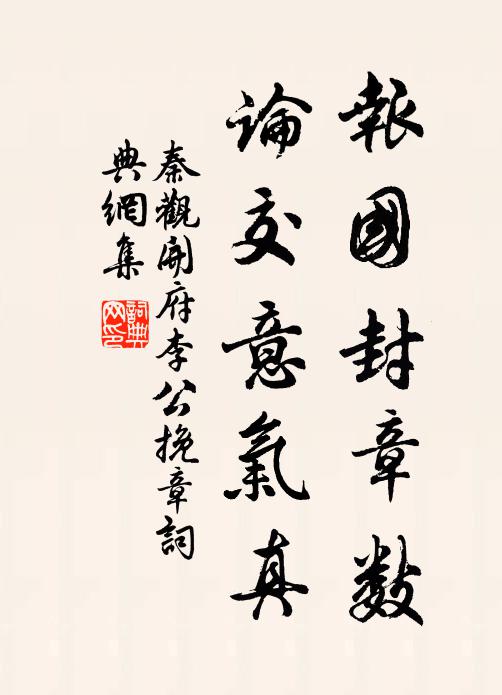 報國封章數
論交意氣真
秦觀開府李公挽章詞
典網集
詞典网印